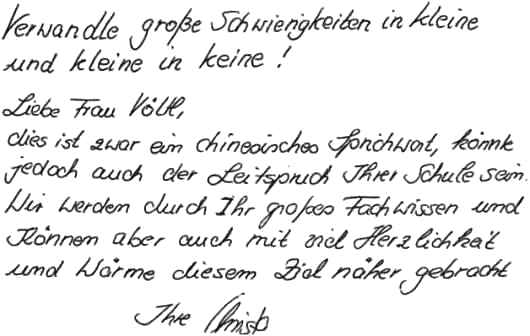 Verwandle große Schwierigkeiten in kleine
und kleine in keine!
Liebe Frau Völkl,
dies ist zwar ein chinesisches Sprichwort, könnte
jedoch auch der Leitspruch Ihrer Schule sein.
Wir werden durch Ihr großes Fachwissen und
Können aber auch mit viel Herzlichkeit
und Wärme diesem Ziel näher gebracht
Ihre